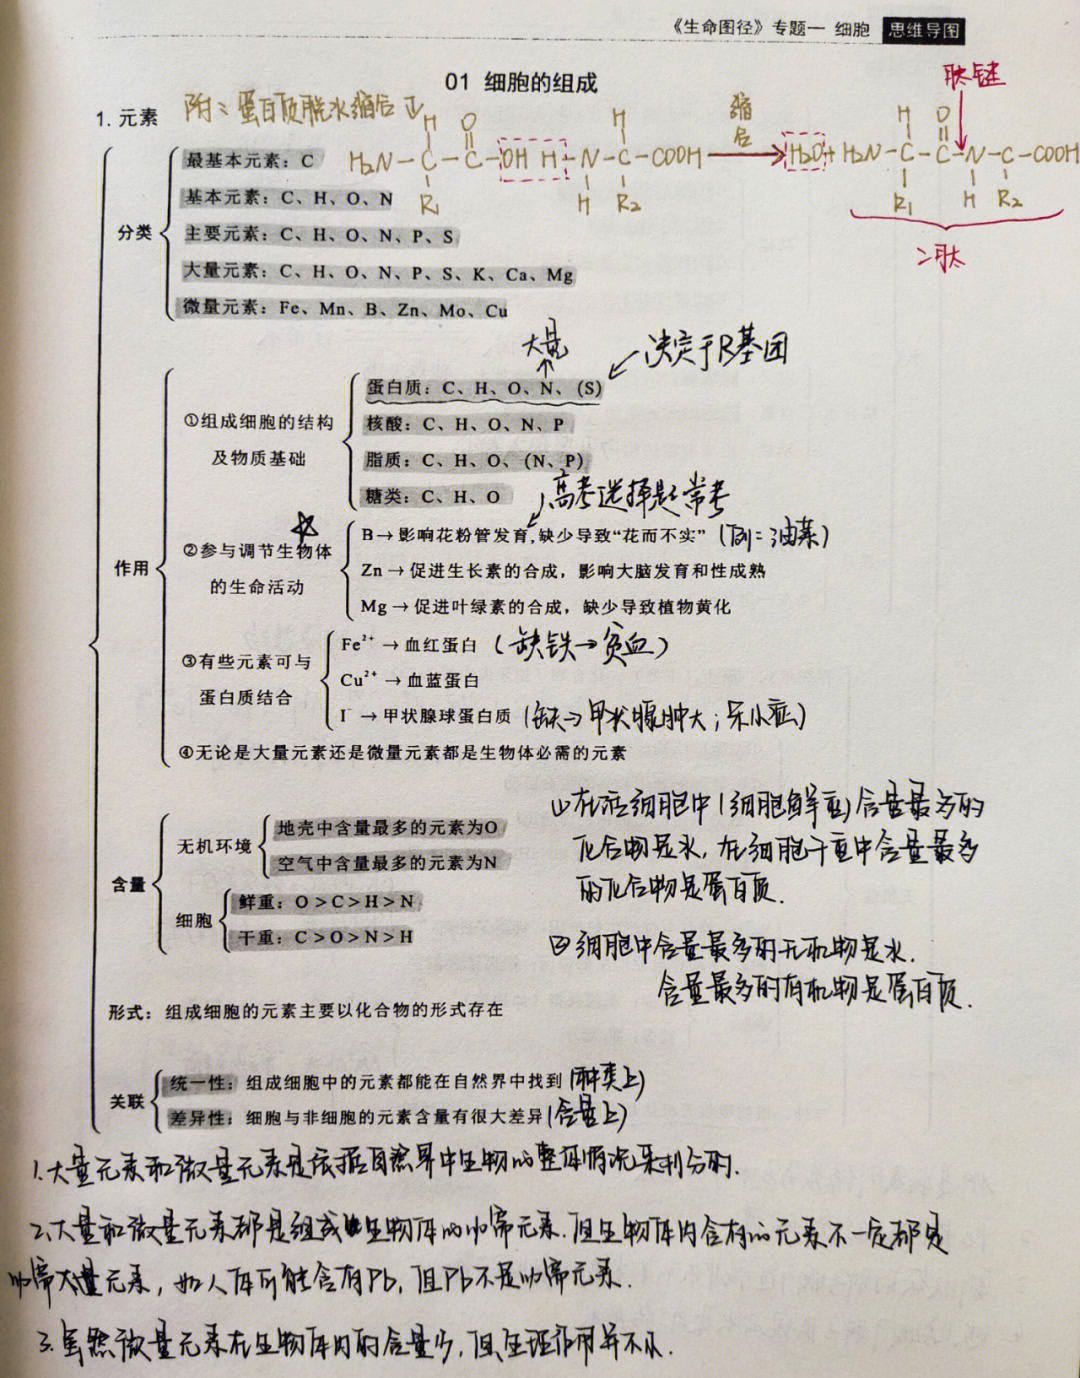 《生命图径》专题一 细胞 思维导图
01 细胞的组成
肽键
1. 元素
附：蛋白质脱水缩合
H O H 缩合 H O
H₂N－C－C－OH H－N－C－COOH → H₂O + H₂N－C－C－N－C－COOH
R₁ H R₂ R₁ H R₂
二肽
分类
最基本元素：C
基本元素：C、H、O、N
主要元素：C、H、O、N、P、S
大量元素：C、H、O、N、P、S、K、Ca、Mg
微量元素：Fe、Mn、B、Zn、Mo、Cu
作用
①组成细胞的结构
及物质基础
大量
决定于R基团
蛋白质：C、H、O、N、(S)
核酸：C、H、O、N、P
脂质：C、H、O、(N、P)
糖类：C、H、O
高考选择题常考
②参与调节生物体
的生命活动
B→影响花粉管发育,缺少导致“花而不实”（例：油菜）
Zn→促进生长素的合成，影响大脑发育和性成熟
Mg→促进叶绿素的合成，缺少导致植物黄化
③有些元素可与
蛋白质结合
Fe²⁺→血红蛋白（缺铁→贫血）
Cu²⁺→血蓝蛋白
I⁻→甲状腺球蛋白质（缺→甲状腺肿大；呆小症）
④无论是大量元素还是微量元素都是生物体必需的元素
含量
无机环境
地壳中含量最多的元素为O
空气中含量最多的元素为N
细胞
鲜重：O＞C＞H＞N
干重：C＞O＞N＞H
① 在活细胞中（细胞鲜重）含量最多的
化合物是水，在细胞干重中含量最多
的化合物是蛋白质.
② 细胞中含量最多的无机物是水.
含量最多的有机物是蛋白质.
形式：组成细胞的元素主要以化合物的形式存在
关联
统一性：组成细胞中的元素都能在自然界中找到（种类上）
差异性：细胞与非细胞的元素含量有很大差异（含量上）
1.大量元素和微量元素是依据自然界中生物的整体情况来划分的.
2.大量和微量元素都是组成生物体的必需元素.但生物体内含有的元素不一定都是
必需大量元素，如人体可能含有Pb，但Pb不是必需元素.
3.虽然微量元素在生物体内的含量少，但生理作用并不小.